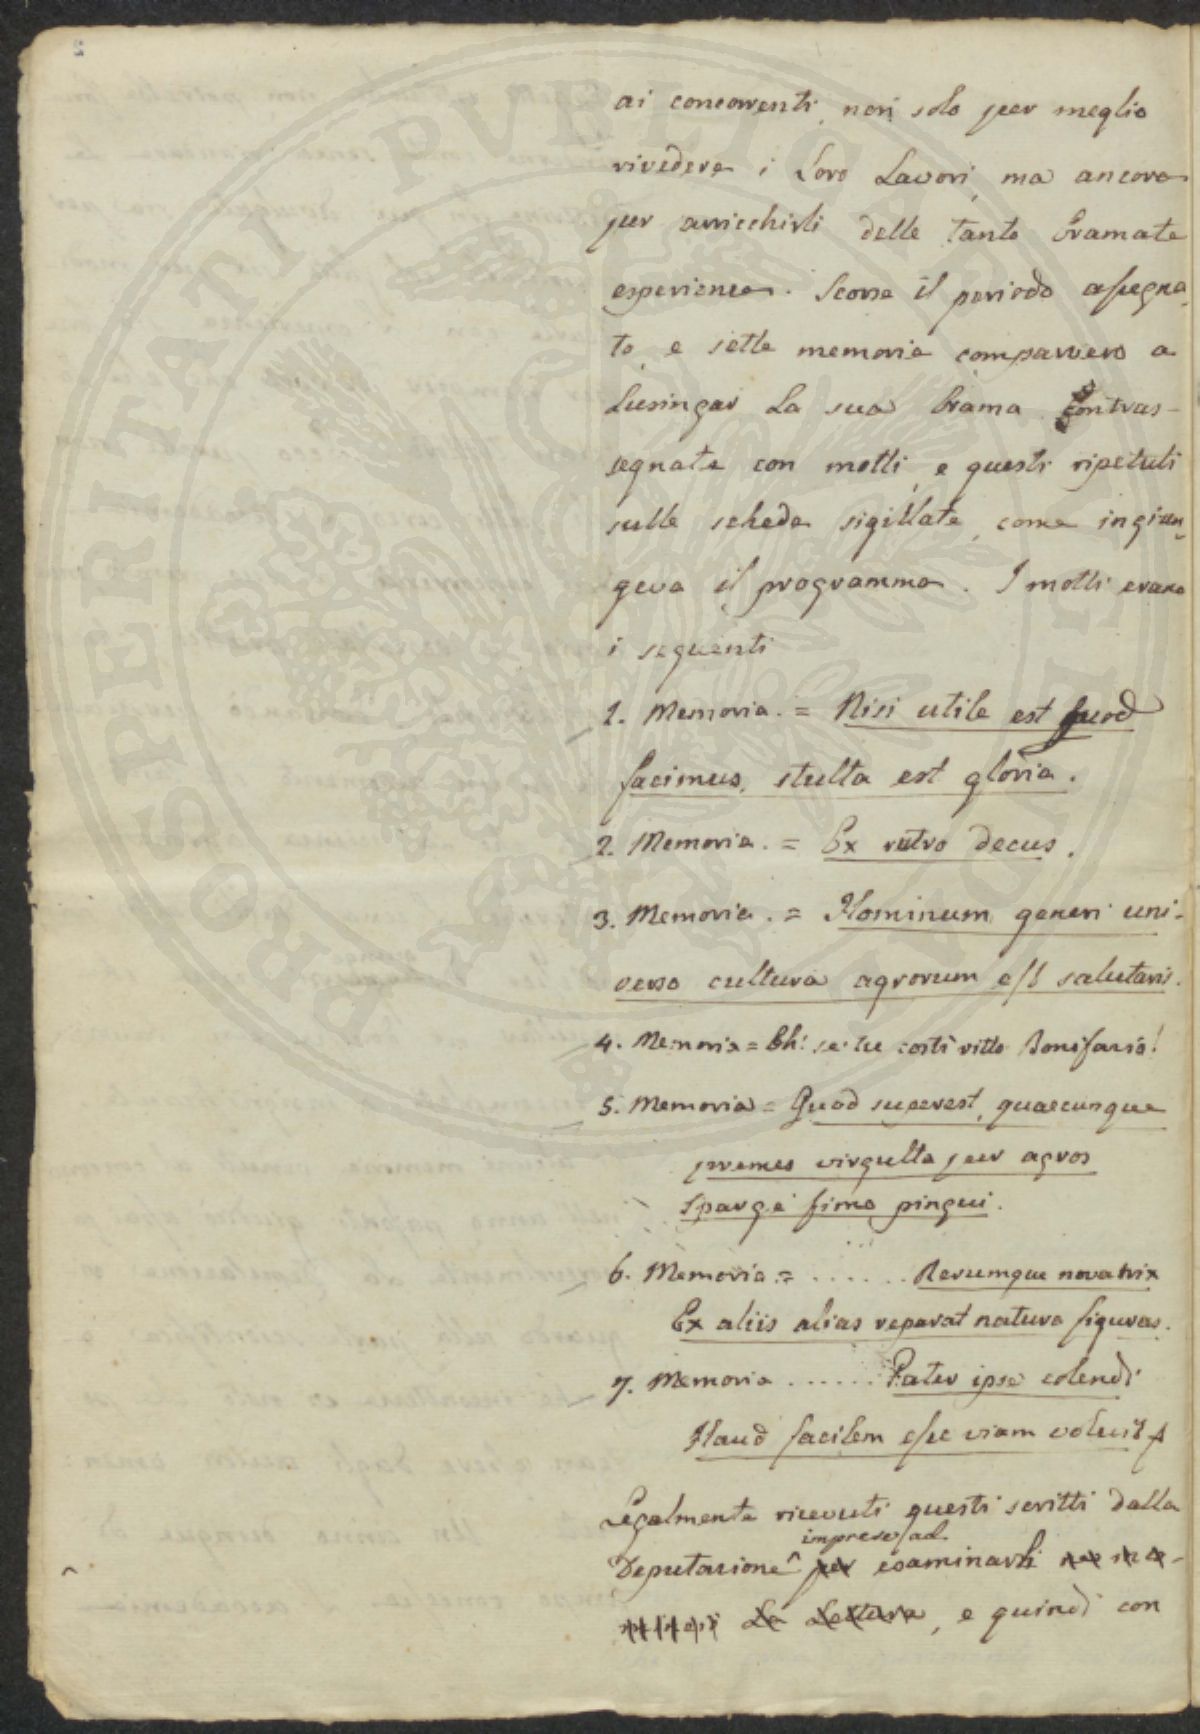 ai concorrenti, non solo per meglio
rivedere i loro Lavori, ma ancora
per arricchirli delle tanto bramate
esperienze. Scorse il periodo assegna,
to, e sette memorie comparvero a
Lusingar La sua brama contras-
segnate con motti, e questi ripetuti
sulle schede sigillate, come ingiun,
geva il programma. I motti erano
i seguenti
1. Memoria. = Nisi utile est quod
facimus, stulta est gloria.
2. Memoria. = Ex rutro decus.
3. Memoria. = Hominum generi uni-
verso cultura agrorum est salutaris.
4. Memoria = Eh! se tu costi vitto Bonifario!
5. Memoria = Quod superest, quaecunque
premes virgulta per agros
Sparge fimo pingui.
6. Memoria = ...... Rerumque novatrix
Ex aliis alias reparat natura figuras.
7. Memoria ...... Pater ipse colendi
Haud facilem esse viam voluit
Legalmente ricevuti questi scritti dalla
impreso ad
Deputazione ^ per esaminarli
La Lettura, e quindi con
PROSPERITATI PVBLICAE AVGENDAE
2